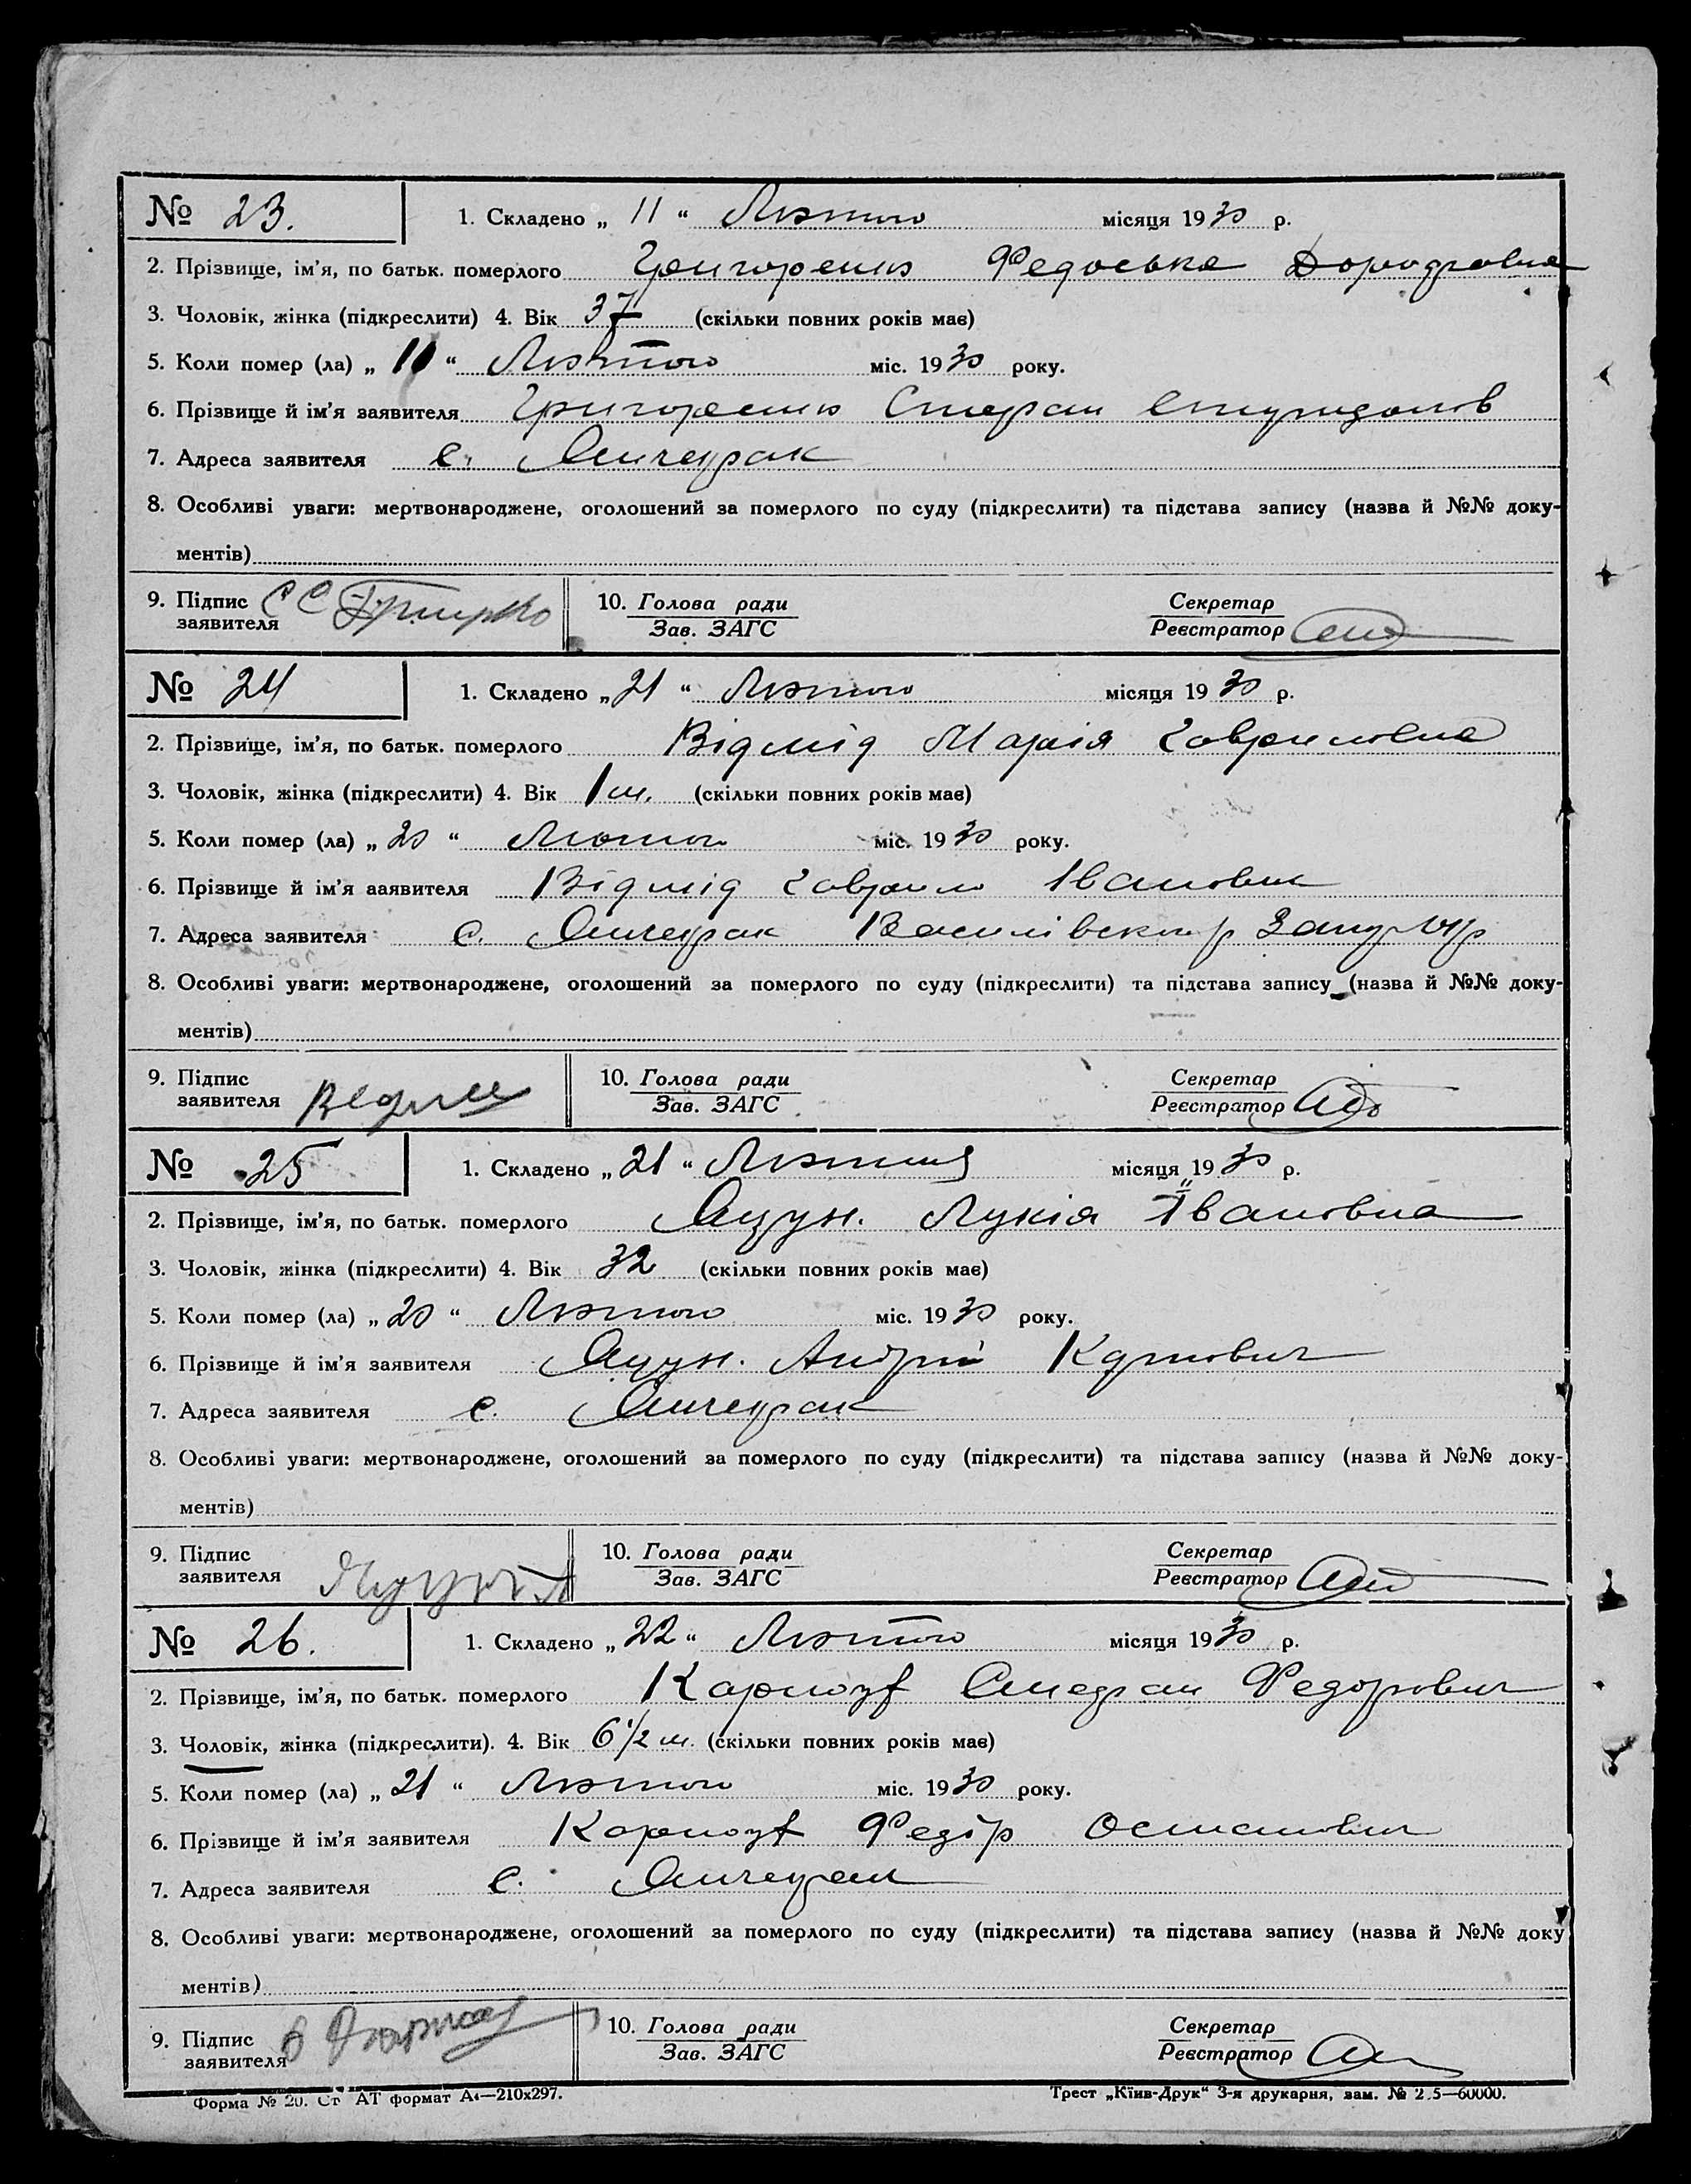 № 23. 1. Складено „ 11 “ Лютого місяця 1930 р.
2. Прізвище, ім'я, по батьк. померлого Григоренко Федоська
3. Чоловік, жінка (підкреслити) 4. Вік 37 (скільки повних років має)
5. Коли помер (ла) „ 11 “ Лютого міс. 1930 року.
6. Прізвище й ім'я заявителя Григоренко Стефан
7. Адреса заявителя с. Янчекрак
8. Особливі уваги: мертвонароджене, оголошений за померлого по суду (підкреслити) та підстава запису (назва й №№ доку-
ментів)
9. Підпис заявителя 10. Голова ради Секретар
Зав. ЗАГС Реєстратор
№ 24 1. Складено „ 21 “ Лютого місяця 1930 р.
2. Прізвище, ім'я, по батьк. померлого Відмід Марія Гавриловна
3. Чоловік, жінка (підкреслити) 4. Вік 1 м. (скільки повних років має)
5. Коли помер (ла) „ 20 “ Лютого міс. 1930 року.
6. Прізвище й ім'я заявителя Відмід Гаврило Іванович
7. Адреса заявителя с. Янчекрак Василівського р
8. Особливі уваги: мертвонароджене, оголошений за померлого по суду (підкреслити) та підстава запису (назва й №№ доку-
ментів)
9. Підпис заявителя 10. Голова ради Секретар
Зав. ЗАГС Реєстратор
№ 25 1. Складено „ 21 “ Лютого місяця 1930 р.
2. Прізвище, ім'я, по батьк. померлого Яцун. Лукія Івановна
3. Чоловік, жінка (підкреслити) 4. Вік 32 (скільки повних років має)
5. Коли помер (ла) „ 20 “ Лютого міс. 1930 року.
6. Прізвище й ім'я заявителя Яцун. Андрій
7. Адреса заявителя с. Янчекрак
8. Особливі уваги: мертвонароджене, оголошений за померлого по суду (підкреслити) та підстава запису (назва й №№ доку-
ментів)
9. Підпис заявителя 10. Голова ради Секретар
Зав. ЗАГС Реєстратор
№ 26. 1. Складено „ 22 “ Лютого місяця 1930 р.
2. Прізвище, ім'я, по батьк. померлого Федорович
3. Чоловік, жінка (підкреслити). 4. Вік 6 1/2 м. (скільки повних років має)
5. Коли помер (ла) „ 21 “ Лютого міс. 1930 року.
6. Прізвище й ім'я заявителя Федір Остапович
7. Адреса заявителя с. Янчекрак
8. Особливі уваги: мертвонароджене, оголошений за померлого по суду (підкреслити) та підстава запису (назва й №№ доку
ментів)
9. Підпис заявителя 10. Голова ради Секретар
Зав. ЗАГС Реєстратор
Форма № 20. Ст АТ формат А4—210х297. Трест „Київ-Друк“ 3-я друкарня, зам. № 2.5—60000.